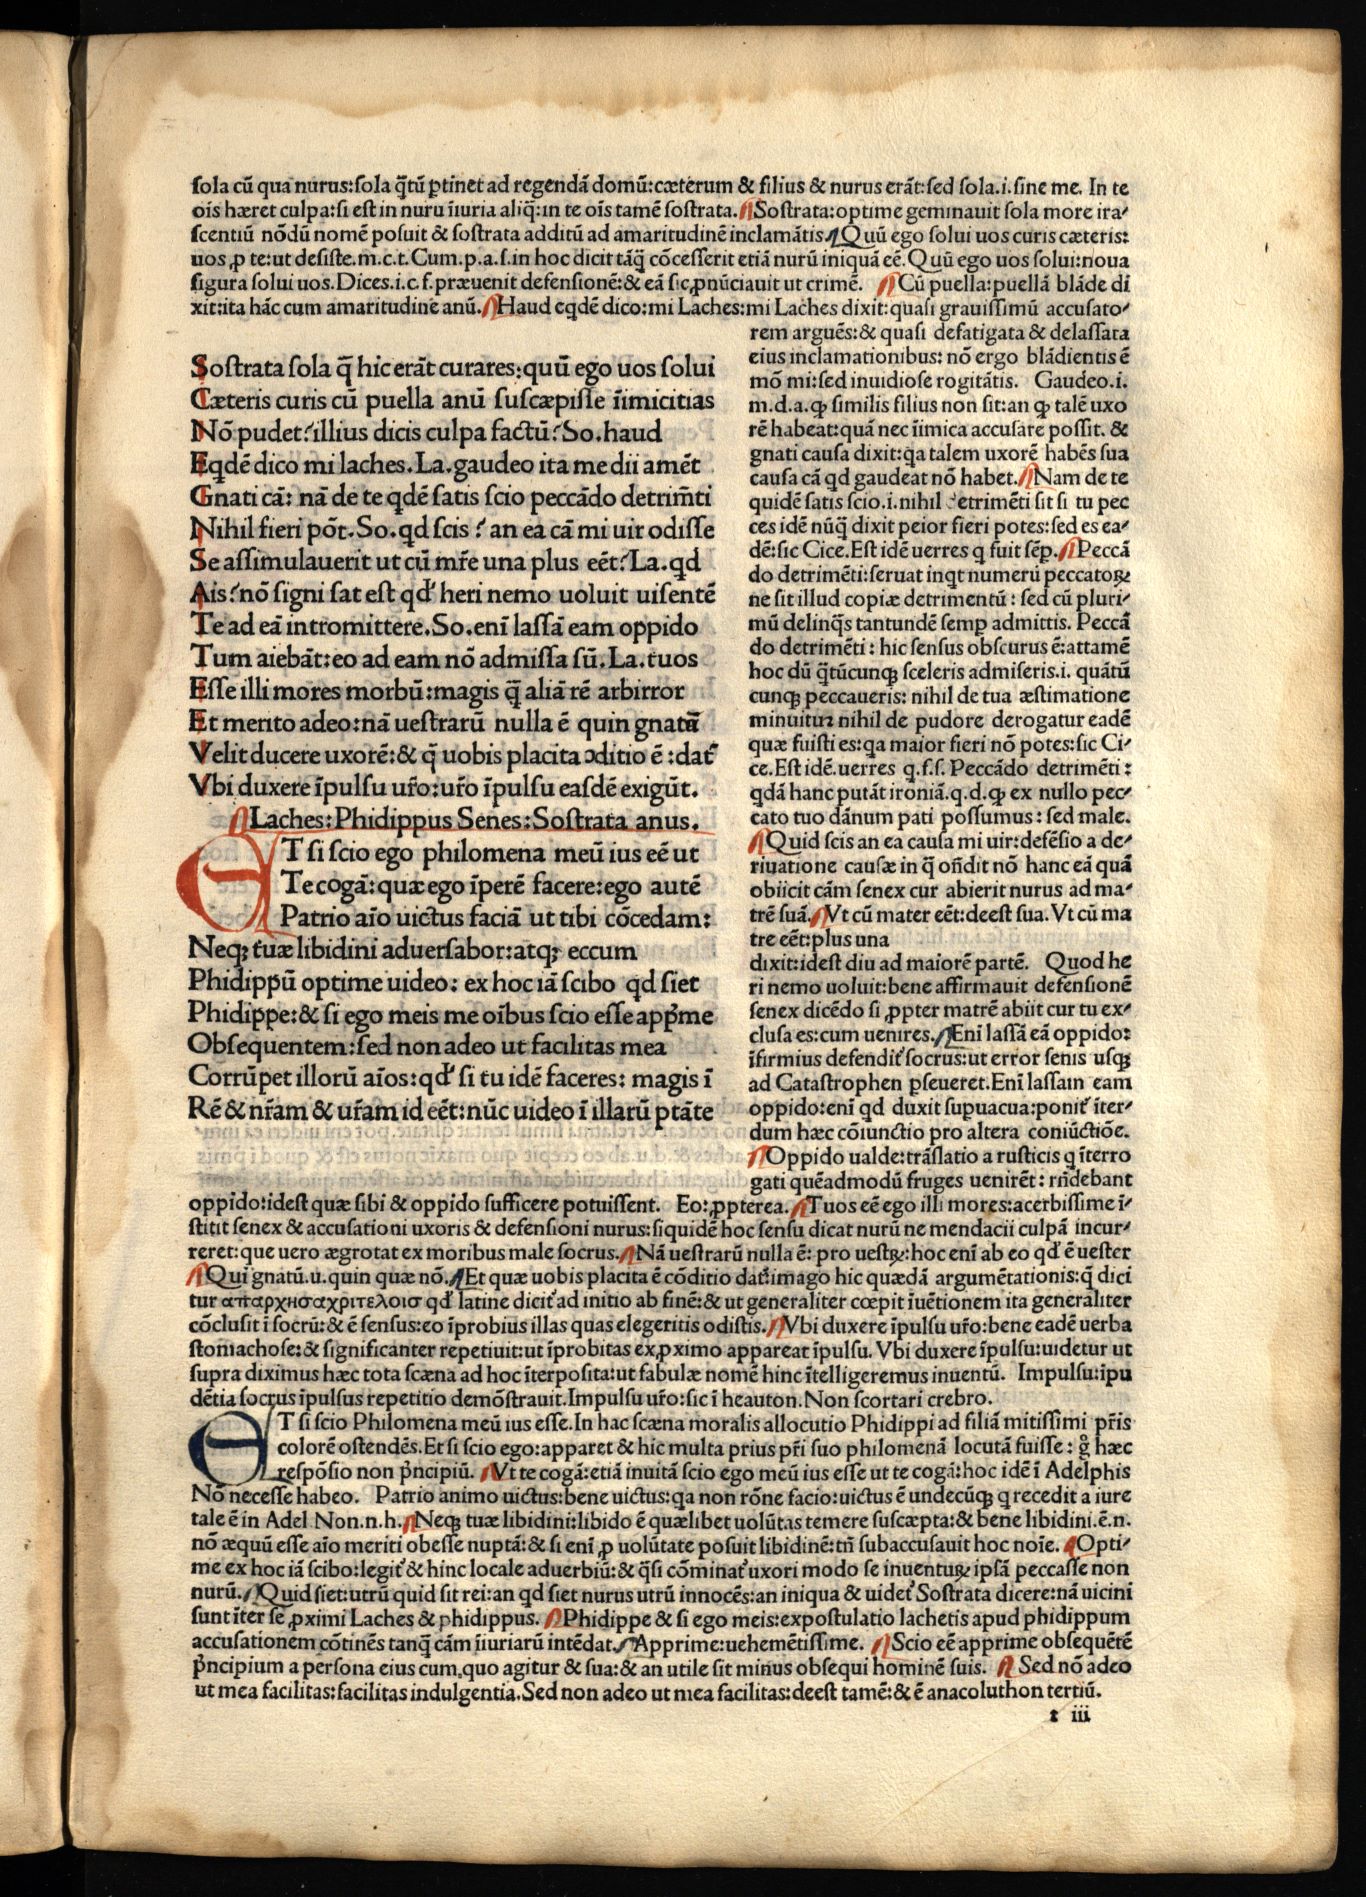 sola cũ qua nurus:sola q̃tũ ꝑtinet ad regendã domũ:cæterum & filius & nurus erãt:sed sola.i.sine me. In te
oĩs hæret culpa:si est in nuru ĩiuria aliq̃:in te oĩs tamẽ sostrata. Sostrata:optime geminauit sola more ira-
scentiũ nõdũ nomẽ posuit & sostrata additũ ad amaritudinẽ inclamãtis. Quũ ego solui uos curis cæteris:
uos ꝓ te:ut desiste.m.c.t. Cum.p.a.s.in hoc dicit tãq̃ cõcesserit etiã nurũ iniquã eẽ. Quũ ego uos solui:noua
figura solui uos. Dices.i.c.f.præuenit defensionẽ:& eã sic ꝓnũciauit ut crimẽ. Cũ puella:puellã blãde di
xit:ita hãc cum amaritudine anũ. Haud eqdẽ dico:mi Laches:mi Laches dixit:quasi grauissimũ accusato-
rem arguẽs:& quasi defatigata & delassata
eius inclamationibus: nõ ergo blãdientis ẽ
mõ mi:sed inuidiose rogitãtis. Gaudeo.i.
m.d.a.ꝙ similis filius non sit:an ꝙ talẽ uxo
rẽ habeat:quã nec ĩimica accusare possit. &
gnati causa dixit:qa talem uxorẽ habẽs sua
causa cã qd gaudeat nõ habet. Nam de te
quidẽ satis scio.i.nihil detrimẽti sit si tu pec
ces idẽ nũq̃ dixit peior fieri potes:sed es ea-
dẽ:sic Cice. Est idẽ uerres q fuit sẽꝑ. Peccã
do detrimẽti:seruat inqt numerũ peccatoꝝ
ne sit illud copiæ detrimentũ: sed cũ pluri-
mũ delinq̃s tantundẽ semꝑ admittis. Peccã
do detrimẽti: hic sensus obscurus ẽ:attamẽ
hoc dũ q̃tũcunqꝫ sceleris admiseris.i. quãtũ
cunqꝫ peccaueris: nihil de tua æstimatione
minuitur nihil de pudore derogatur eadẽ
quæ fuisti es:qa maior fieri nõ potes:sic Ci-
ce. Est idẽ.uerres q.f.s. Peccãdo detrimẽti:
qdã hanc putãt ironiã.q.d.ꝙ ex nullo pec-
cato tuo dãnum pati possumus: sed male.
Quid scis an ea causa mi uir:defẽsio a de-
riuatione causæ in q̃ oñdit nõ hanc eã quã
obiicit cãm senex cur abierit nurus ad ma-
trẽ suã. Vt cũ mater eẽt:deest sua. Vt cũ ma
tre eẽt:plus una
dixit:idest diu ad maiorẽ partẽ. Quod he
ri nemo uoluit:bene affirmauit defensionẽ
senex dicẽdo si ꝓpter matrẽ abiit cur tu ex-
clusa es:cum uenires. Enĩ lassã eã oppido:
ĩfirmius defendit᷑ socrus:ut error senis usqꝫ
ad Catastrophen ꝑseueret. Enĩ lassam eam
oppido:enĩ qd duxit supuacua:ponit᷑ ĩter-
dum hæc cõiunctio pro altera coniũctiõe.
Oppido ualde:trãslatio a rusticis q ĩterro
gati quẽadmodũ fruges uenirẽt: rñdebant
Sostrata sola q̃ hic erãt curares:quũ ego uos solui
Cæteris curis cũ puella anũ suscæpisse ĩimicitias
Nõ pudet? illius dicis culpa factũ? So.haud
Eqdẽ dico mi laches. La.gaudeo ita me dii amẽt
Gnati cã: nã de te qdẽ satis scio peccãdo detrim̃ti
Nihil fieri põt. So. qd scis? an ea cã mi uir odisse
Se assimulauerit ut cũ mr̃e una plus eẽt? La. qd
Ais? nõ signi sat est qd' heri nemo uoluit uisentẽ
Te ad eã intromittere. So. enĩ lassã eam oppido
Tum aiebãt:eo ad eam nõ admissa sũ. La. tuos
Esse illi mores morbũ:magis q̃ aliã rẽ arbirror
Et merito adeo:nã uestrarũ nulla ẽ quin gnatũ
Velit ducere uxorẽ:& q̃ uobis placita ↄditio ẽ: dat᷑
Vbi duxere ĩpulsu ur̃o:ur̃o ĩpulsu easdẽ exigũt.
Laches: Phidippus Senes: Sostrata anus.
ET si scio ego philomena meũ ius eẽ ut
Te cogã: quæ ego ĩperẽ facere:ego autẽ
Patrio aĩo uictus faciã ut tibi cõcedam:
Neqꝫ tuæ libidini aduersabor:atqꝫ eccum
Phidippũ optime uideo: ex hoc iã scibo qd siet
Phidippe:& si ego meis me oĩbus scio esse app̃me
Obsequentem:sed non adeo ut facilitas mea
Corrũpet illorũ aĩos:qd' si tu idẽ faceres: magis ĩ
Rẽ & nr̃am & ur̃am id eẽt:nũc uideo ĩ illarũ ptãte
oppido:idest quæ sibi & oppido sufficere potuissent. Eo:ꝓpterea. Tuos eẽ ego illi mores:acerbissime ĩ-
stitit senex & accusationi uxoris & defensioni nurus:siquidẽ hoc sensu dicat nurũ ne mendacii culpã incur-
reret:que uero ægrotat ex moribus male socrus. Nã uestrarũ nulla ẽ: pro uestꝝ:hoc enĩ ab eo qd' ẽ uester
Qui gnatũ.u.quin quæ nõ. Et quæ uobis placita ẽ cõditio dat᷑:imago hic quædã argumẽtationis:q̃ dici
tur απαρχησαχριτελοισ qd' latine dicit᷑ ad initio ab finẽ:& ut generaliter cœpit ĩuẽtionem ita generaliter
cõclusit ĩ socrũ:& ẽ sensus:eo ĩprobius illas quas elegeritis odistis. Vbi duxere ĩpulsu ur̃o:bene eadẽ uerba
stomachose:& significanter repetiuit:ut ĩprobitas ex ꝓximo appareat ĩpulsu. Vbi duxere ĩpulsu:uidetur ut
supra diximus hæc tota scæna ad hoc ĩterposita:ut fabulæ nomẽ hinc ĩtelligeremus inuentũ. Impulsu:ipu
dẽtia socrus ĩpulsus repetitio demõstrauit. Impulsu ur̃o:sic ĩ heauton. Non scortari crebro.
ET si scio Philomena meũ ius esse. In hac scæna moralis allocutio Phidippi ad filiã mitissimi pr̃is
colorẽ ostendẽs. Et si scio ego:apparet & hic multa prius pr̃i suo philomenã locutã fuisse: g̊ hæc
respõsio non p̃ncipiũ. Vt te cogã:etiã inuitã scio ego meũ ius esse ut te cogã:hoc idẽ ĩ Adelphis
Nõ necesse habeo. Patrio animo uictus:bene uictus:qa non rõne facio:uictus ẽ undecũqꝫ q recedit a iure
tale ẽ in Adel Non.n.h. Neqꝫ tuæ libidini:libido ẽ quælibet uolũtas temere suscæpta:& bene libidini.ẽ.n.
nõ æquũ esse aĩo meriti obesse nuptã:& si enĩ ꝓ uolũtate posuit libidinẽ:tñ subaccusauit hoc noĩe. Opti-
me ex hoc iã scibo:legit᷑ & hinc locale aduerbiũ:& q̃si cõminat᷑ uxori modo se inuentuꝝ ipsã peccasse non
nurũ. Quid siet:utrũ quid sit rei:an qd siet nurus utrũ innocẽs:an iniqua & uidet᷑ Sostrata dicere:nã uicini
sunt ĩter se ꝓximi Laches & phidippus. Phidippe & si ego meis:expostulatio lachetis apud phidippum
accusationem cõtinẽs tanq̃ cãm ĩiuriarũ intẽdat. Apprime:uehemẽtissime. Scio eẽ apprime obsequẽtẽ
p̃ncipium a persona eius cum quo agitur & sua:& an utile sit minus obsequi hominẽ suis. Sed nõ adeo
ut mea facilitas:facilitas indulgentia. Sed non adeo ut mea facilitas:deest tamẽ:& ẽ anacoluthon tertiũ.
r iii